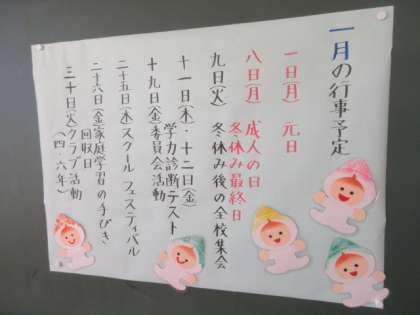 一月の行事予定
一日(月) 元日
八日(月) 成人の日
冬休み最終日
九日(火) 冬休み後の全校集会
十一日(木)・十二日(金)
学力診断テスト
十九日(金)委員会活動
二十五日(木)スクールフェスティバル
二十六日(金)家庭学習の手びき
回収日
三十日(火)クラブ活動
(四・六年)